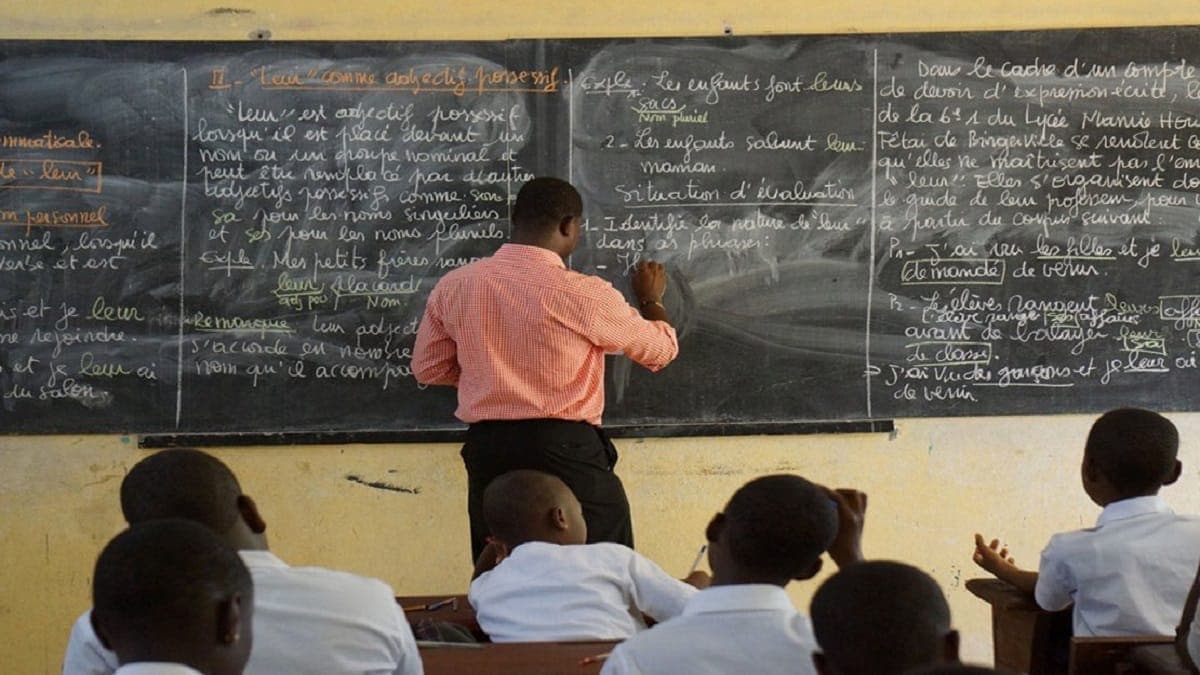 mmaticale.
"leur"
personnel
lorsqu'il
et est
et je leur
rejoindre.
et je leur ai
du salon.
II - "Leur" comme adjectif possessif
"Leur" est adjectif possessif
lorsqu'il est placé devant un
nom ou un groupe nominal et
peut être remplacé par d'autres
adjectifs possessifs comme: son
sa pour les noms singuliers
et ses pour les noms pluriels.
Exple. Mes petits frères
leur placard
adj pos Nom.
Remarque leur adject
s'accorde en nombre
nom qu'il accompa
Exple: Les enfants font leurs
sacs
Nom pluriel
2- Les enfants saluent leur
maman.
Situation d'évaluation
1- Identifie la nature de "leur"
dans ces phrases:
Dans le cadre d'un compte
de devoir d'expression écrite, le
de la 6e 1 du Lycée Mamie
Fêtai de Bingerville se rendent
qu'elles ne maîtrisent pas l'em
"leur". Elles s'organisent
le guide de leur professeur, pour
à partir du corpus suivant:
P1- J'ai vu les filles et je leur
demandé de venir.
P2- les élèves rangent leurs
l'élève range ses affaires
avant de balayer leur
sa
de classe.
J'ai vu des garçons et je leur ai
de venir